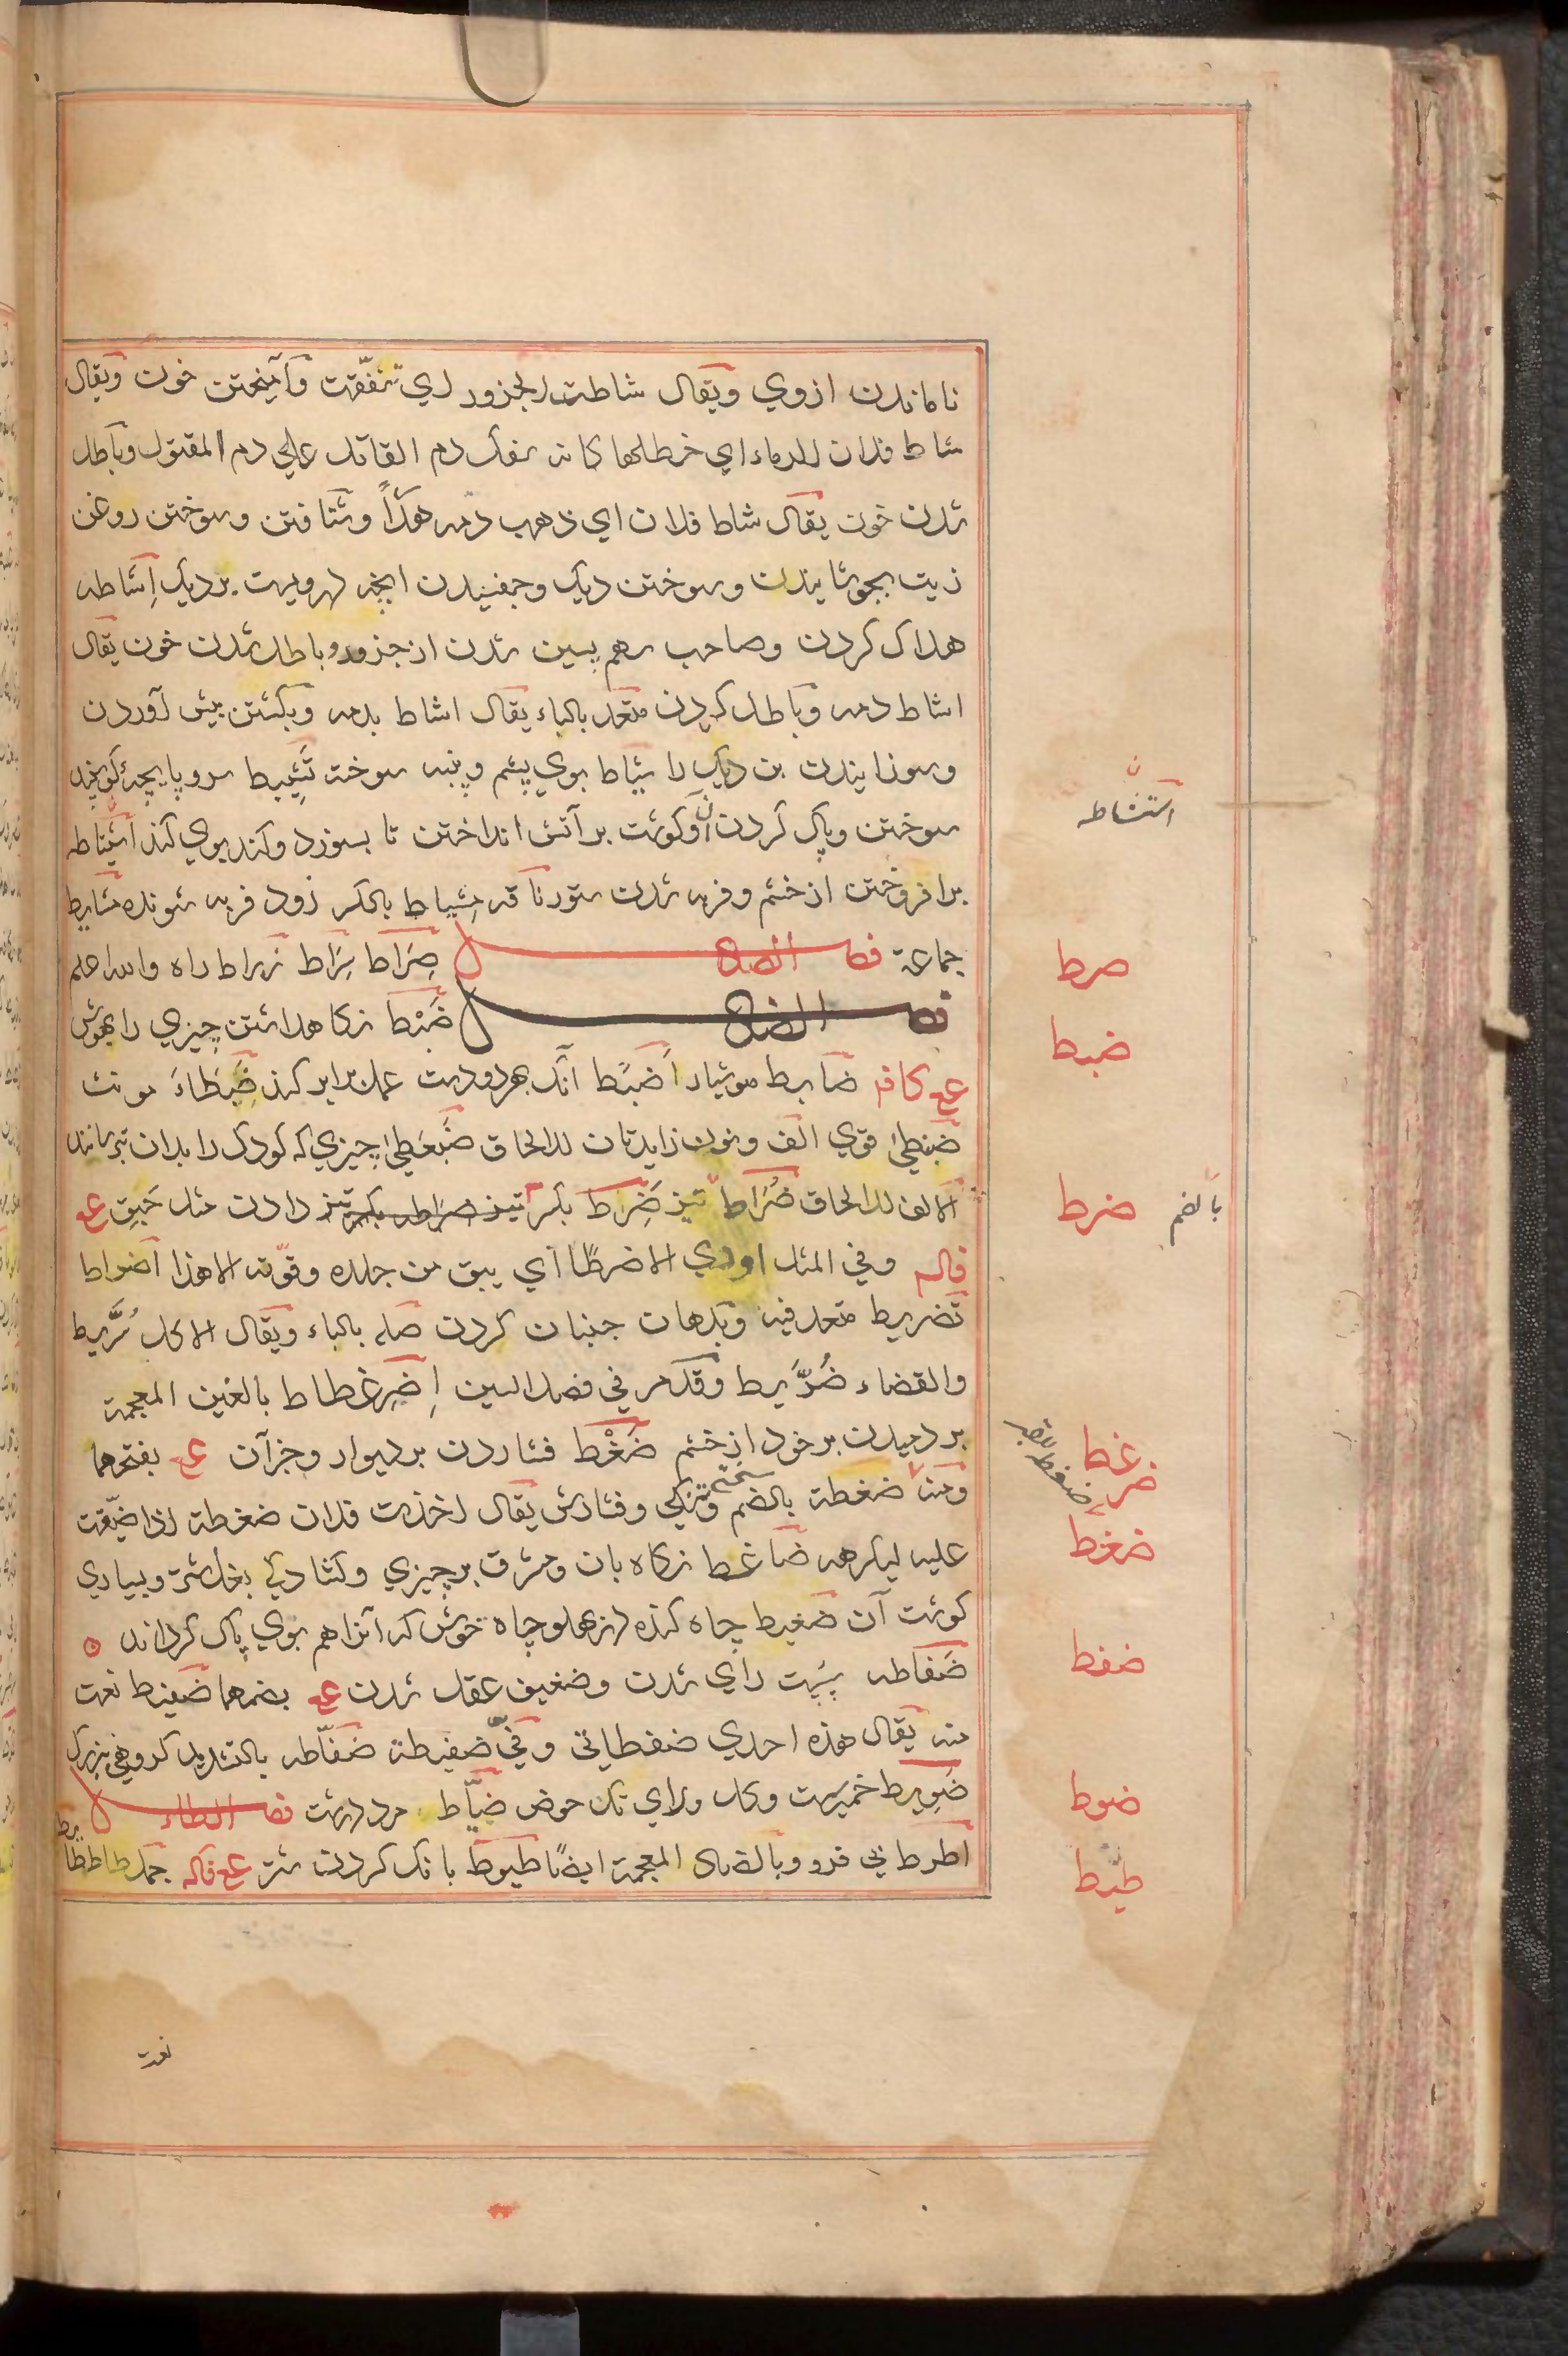 ناماندن ازوي ويقال شاطت الجزور اي تنفّقت وآميختن خون ويقال
شاط فلان الدماء اي خطلها كانه سفك دم القاتل علي دم المقتول وباطل
شدن خون يقال شاط فلان اي ذهب دمه هدرًا وشتافتن وسوختن روغن
زيت بجوشانيدن وسوختن ديك وچفسيدن انچه دروست بر ديك اِشاطه
هلاك كردن وصاحب سهم پسين شدن از جزور وباطل شدن خون يقال
اشاط دمه وباطل كردن متعد بالباء يقال اشاط بدمه وبكشتن پيش آوردن
وسوزانيدن بن ديك را شياط بوي پشم وپنبه سوخته تَشْييط سر و پايچهٔ گوسپند
استشاطه
سوختن وپاك كردن آن وگوشت بر آتش انداختن تا بسوزد وكند بوي كند اشتاطه
برافروختن از خشم وفربه شدن ستور ناقه مِشياط بالكسر زود فربه شونده مشاييط
جماعة فصل الصاد صِرَاط سِرَاط زراط راه والله اعلم
صرط
فصل الضاد ضَبْط نگاهداشتن چيزي را بهوش
ضبط
ع كافه ضابط هوشيار اَضبَط آنك بهر دو دست عمل برابر كند ضَبطاءَ مونث
ضبنطيٰ قوي الف ونون زايدتان للالحاق ضَبَغطيٰ چيزي كه كودك را بدان بترسانند
الالف للالحاق ضُرَاط تيز ضَرِط بكسر تيز دادن مثل حَبِق ع
ضرط بالضم
فاله وفي المثل اودي الا ضرطًا اي يبق من جلده وقوّته الا هذا اضراط
تضريط متعد فيه وبدهان جنبان كردن صله بالباء ويقال الاكل سُرَّيط
والقضاء ضُرَّيط وقد مر في فصل السين اِضرِغطاط بالغين المعجمة
بردميدن بر خود از خشم ضَغْط فشاردن بر ديوار وجز آن ع بفتحهما
ضرغط
ومنه ضغطة بالضم سختي وتنگي وفشارش يقال اخذت فلان ضغطة اذا ضيّقت
ضغط
عليه ليكرهه ضاغط نگاه بان ومشرف بر چيزي وكشادگي بغل شتر وبسياري
گوشت آن ضغيط چاه كنده در پهلو چاه خوش كه آنرا هم بوي پاك گرداند
ضَفاطه سست راي شدن وضعيف عقل شدن ع بضمهما ضفيط نعت
ضفط
منه يقال هذه احدي ضفطاتي وفيّ ضفيطة ضفّاطه بالتشديد گروهي بزرگ
ضَويط خمير سست وگل ولاي تك حوض ضيّاط مرد درشت فصل الطاء
ضوط
اطرط بي فرو وبالضاد المعجمة ايضًا طيوط بانگ كردن شتر ع فاله جمل طاط
طيط
نعت